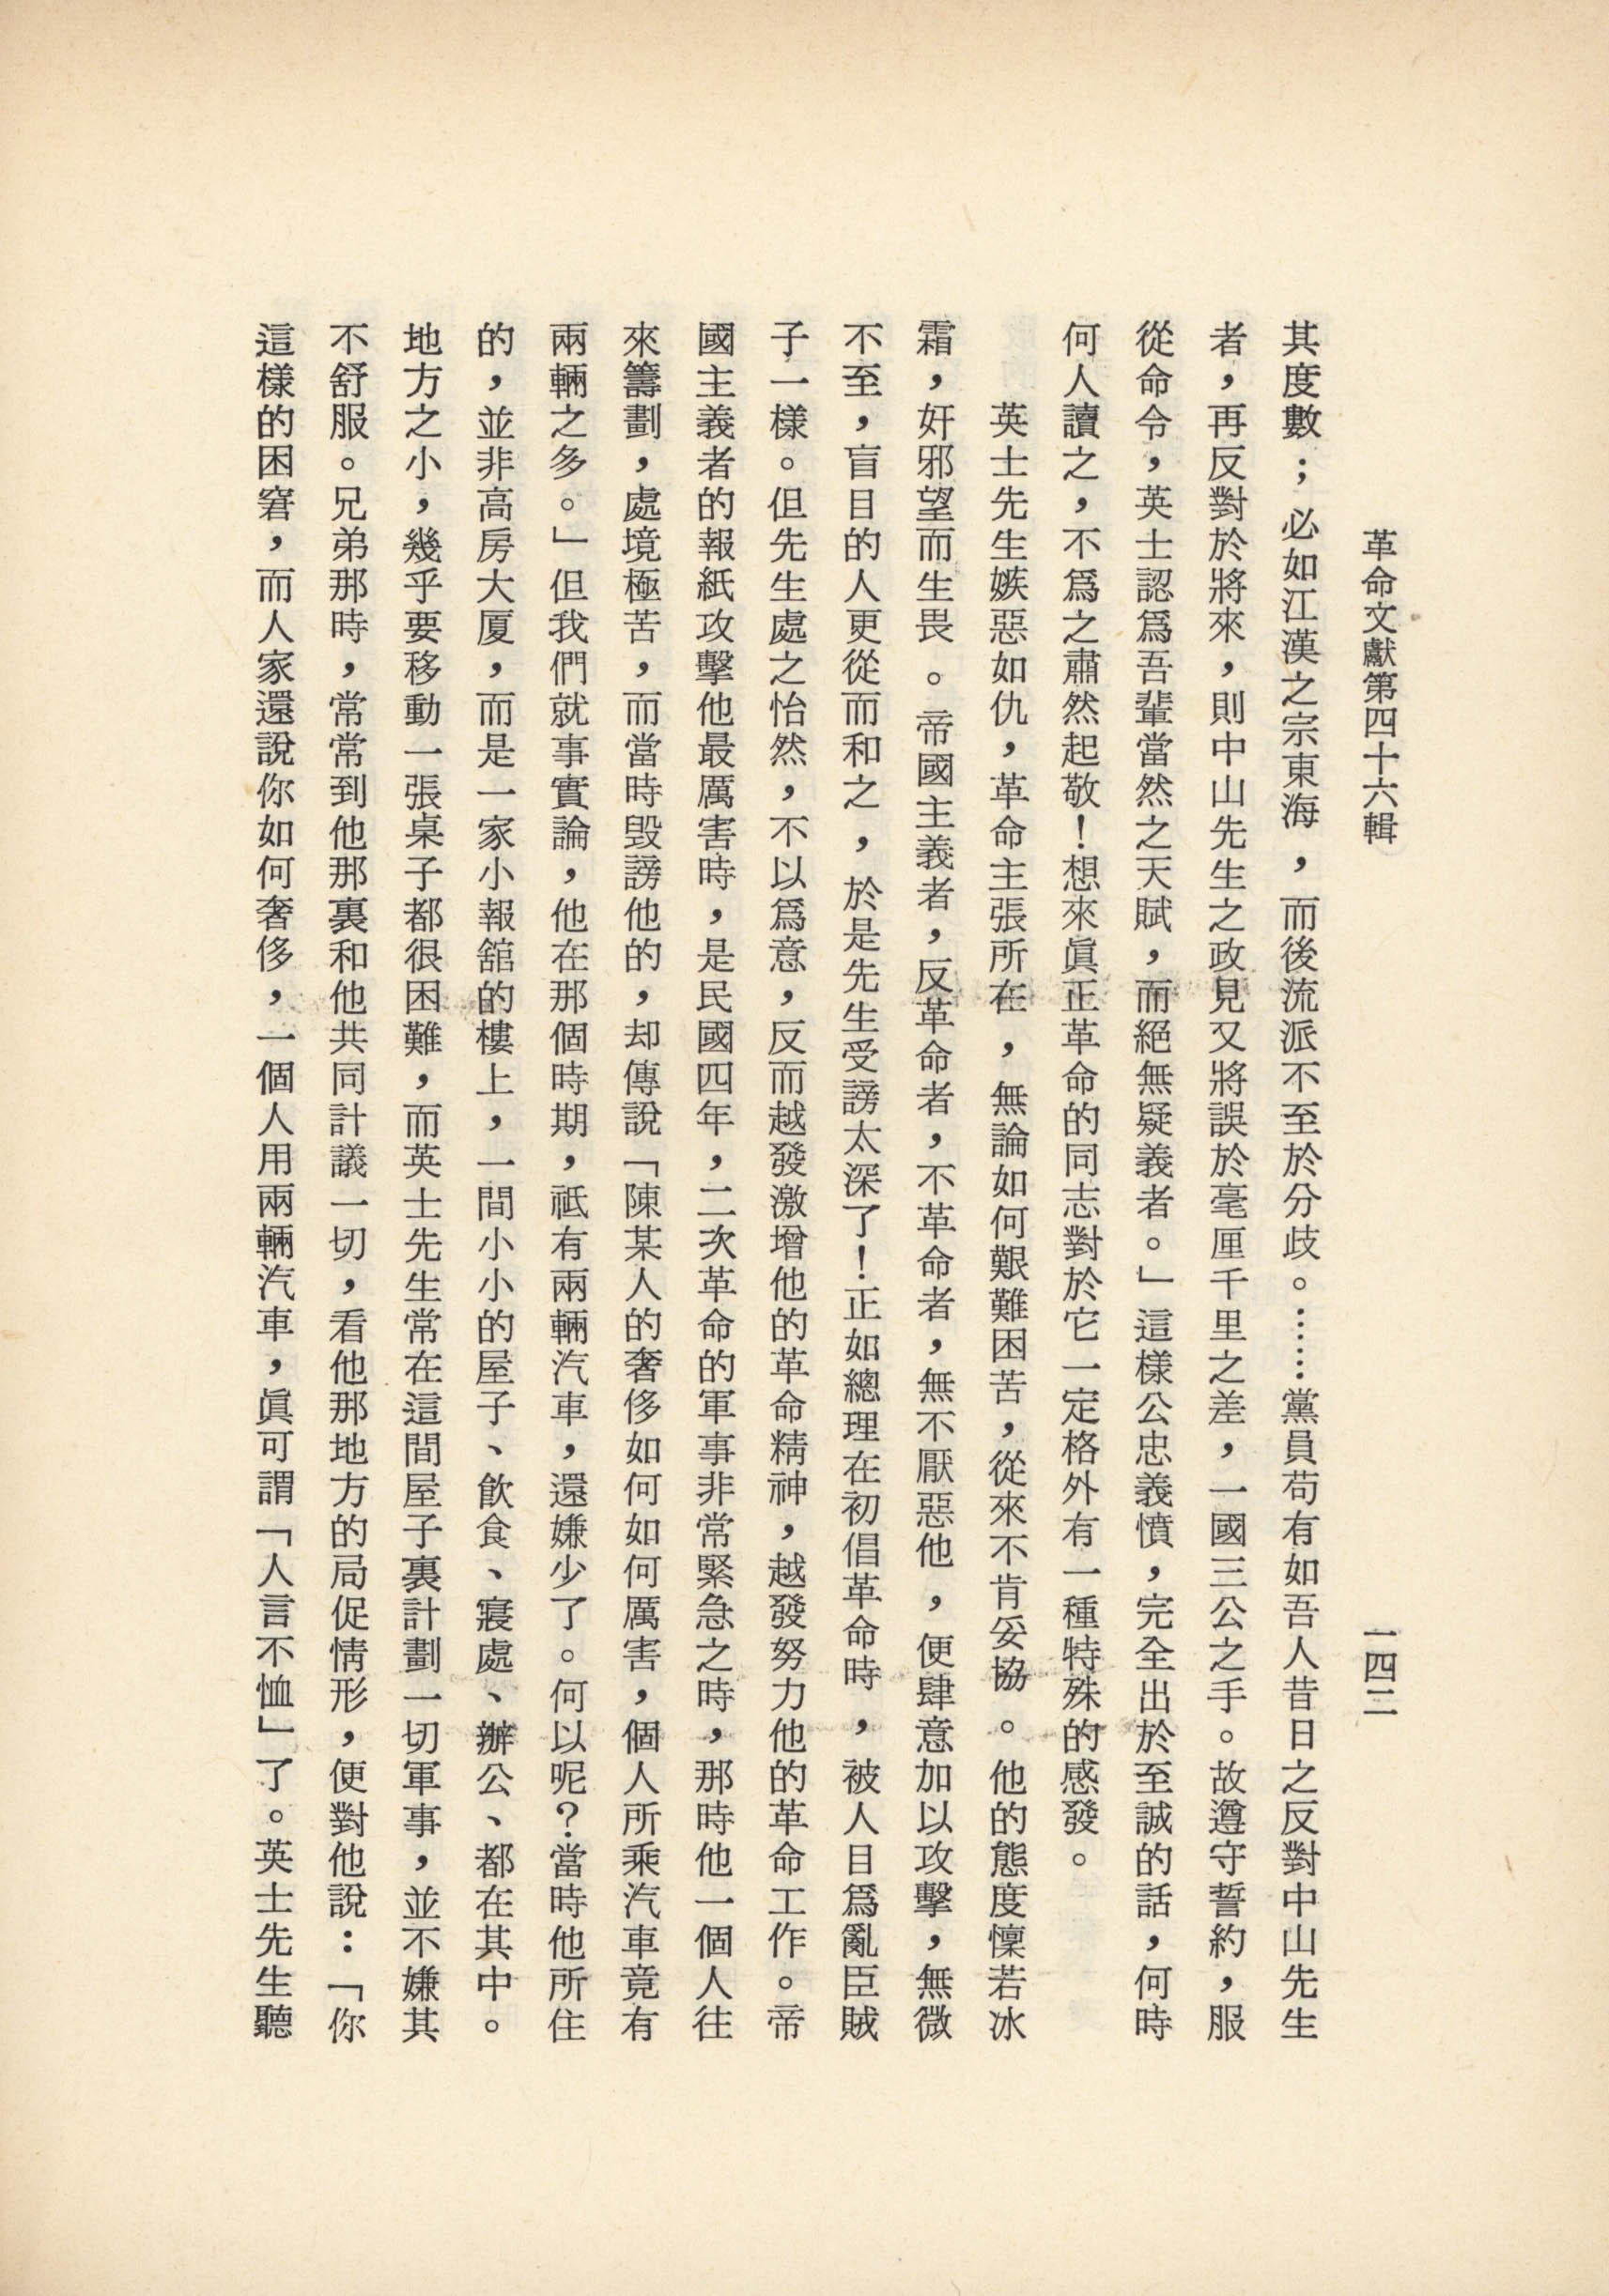 革命文獻第四十六輯
一四二
其度數；必如江漢之宗東海，而後流派不至於分歧。……黨員苟有如吾人昔日之反對中山先生
者，再反對於將來，則中山先生之政見又將誤於毫厘千里之差，一國三公之手。故遵守誓約，服
從命令，英士認爲吾輩當然之天賦，而絕無疑義者。」這樣公忠義憤，完全出於至誠的話，何時
何人讀之，不爲之肅然起敬！想來眞正革命的同志對於它一定格外有一種特殊的感發。
英士先生嫉惡如仇，革命主張所在，無論如何艱難困苦，從來不肯妥協。他的態度懍若冰
霜，奸邪望而生畏。帝國主義者，反革命者，不革命者，無不厭惡他，便肆意加以攻擊，無微
不至，盲目的人更從而和之，於是先生受謗太深了！正如總理在初倡革命時，被人目爲亂臣賊
子一樣。但先生處之怡然，不以爲意，反而越發激增他的革命精神，越發努力他的革命工作。帝
國主義者的報紙攻擊他最厲害時，是民國四年，二次革命的軍事非常緊急之時，那時他一個人往
來籌劃，處境極苦，而當時毀謗他的，却傳說「陳某人的奢侈如何如何厲害，個人所乘汽車竟有
兩輛之多。」但我們就事實論，他在那個時期，祇有兩輛汽車，還嫌少了。何以呢？當時他所住
的，並非高房大厦，而是一家小報舘的樓上，一間小小的屋子、飲食、寢處、辦公、都在其中。
地方之小，幾乎要移動一張桌子都很困難，而英士先生常在這間屋子裏計劃一切軍事，並不嫌其
不舒服。兄弟那時，常常到他那裏和他共同計議一切，看他那地方的局促情形，便對他說：「你
這樣的困窘，而人家還說你如何奢侈，一個人用兩輛汽車，眞可謂「人言不恤」了。英士先生聽